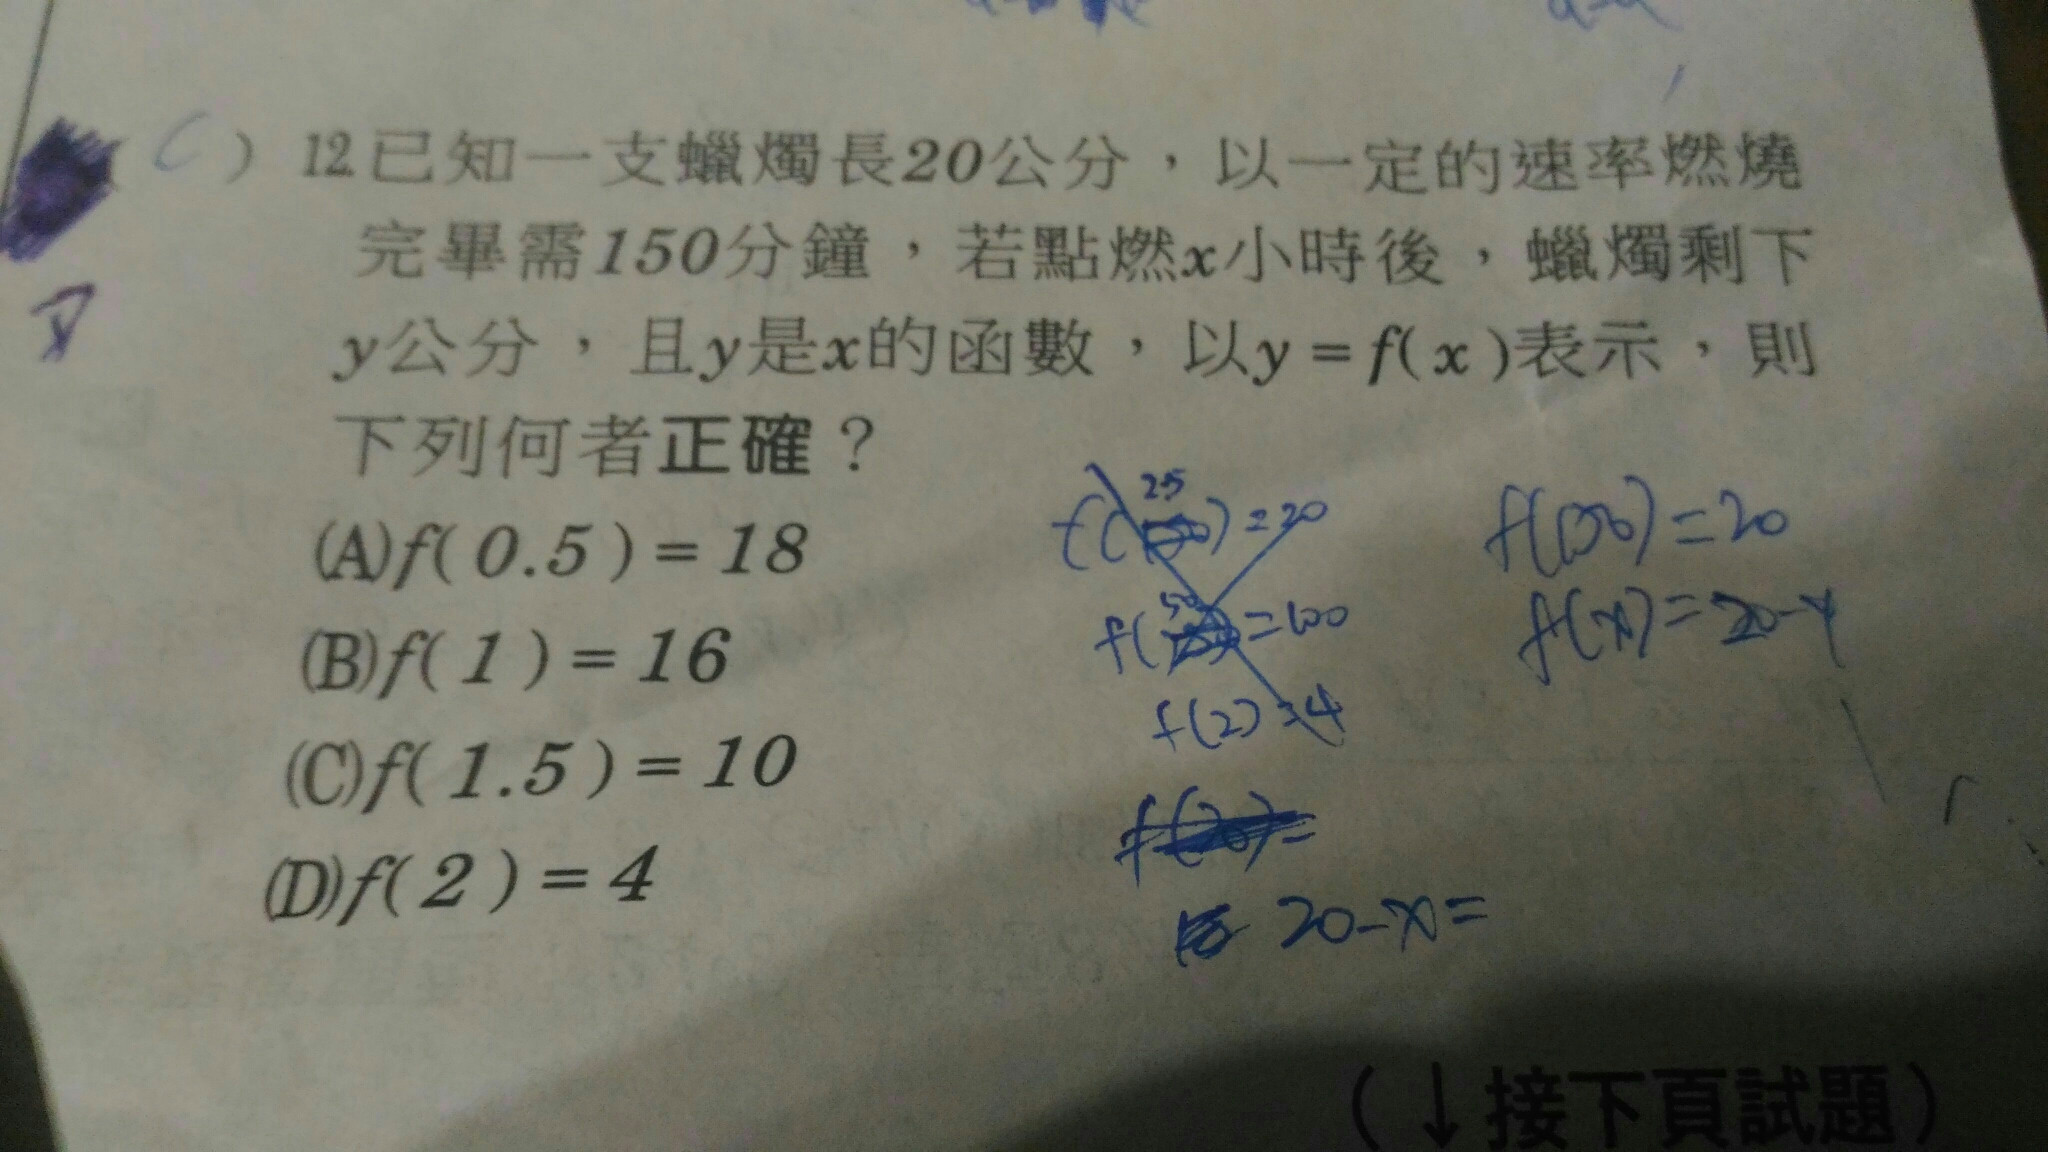 ( ) 12已知一支蠟燭長20公分，以一定的速率燃燒
完畢需150分鐘，若點燃x小時後，蠟燭剩下
y公分，且y是x的函數，以y=f(x)表示，則
下列何者正確？
(A)f(0.5)=18
(B)f(1)=16
(C)f(1.5)=10
(D)f(2)=4
f(25)=20
f(50)=100
f(2)=4
20-x=
f(150)=20
f(x)=20-y
(↓接下頁試題)